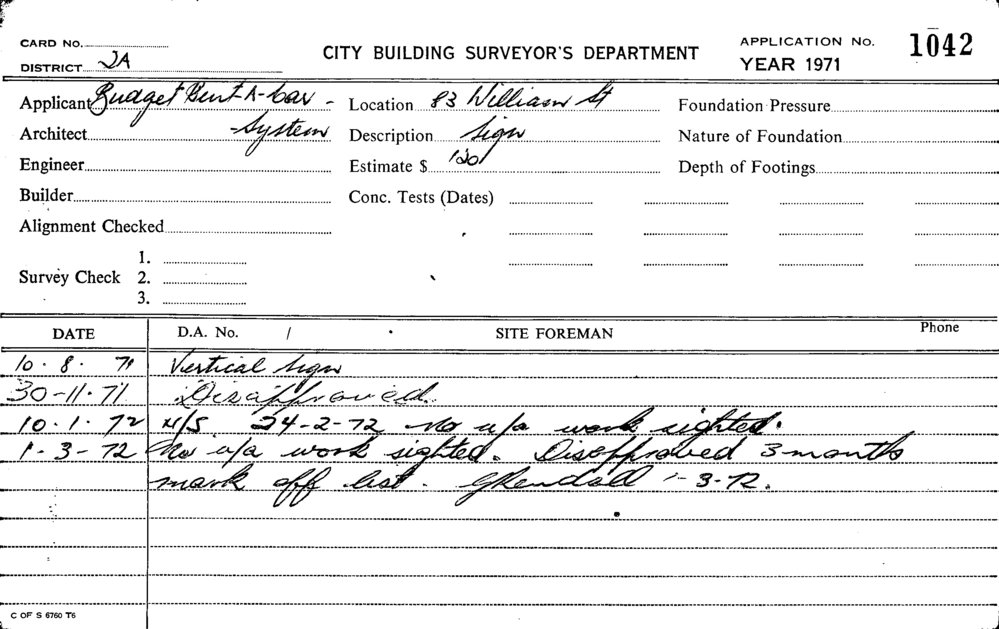 CARD No.
CITY BUILDING SURVEYOR'S DEPARTMENT
APPLICATION No. 1042
DISTRICT 2A
YEAR 1971
Applicant Budget Rent-A-Car - Location 83 William St Foundation Pressure
Architect -System Description Sign Nature of Foundation
Engineer Estimate $ 120/ Depth of Footings
Builder Conc. Tests (Dates)
Alignment Checked
1.
Survey Check 2.
3.
DATE D.A. No. / SITE FOREMAN Phone
10.8.71 Vertical Sign
30-11-71 Disapproved.
10.1.72 N/S. 24-2-72 No u/a work sighted.
1-3-72 No u/a work sighted. Disapproved 3 months
mark off list. GKendall 1-3-72.
C OF S 6760 T6